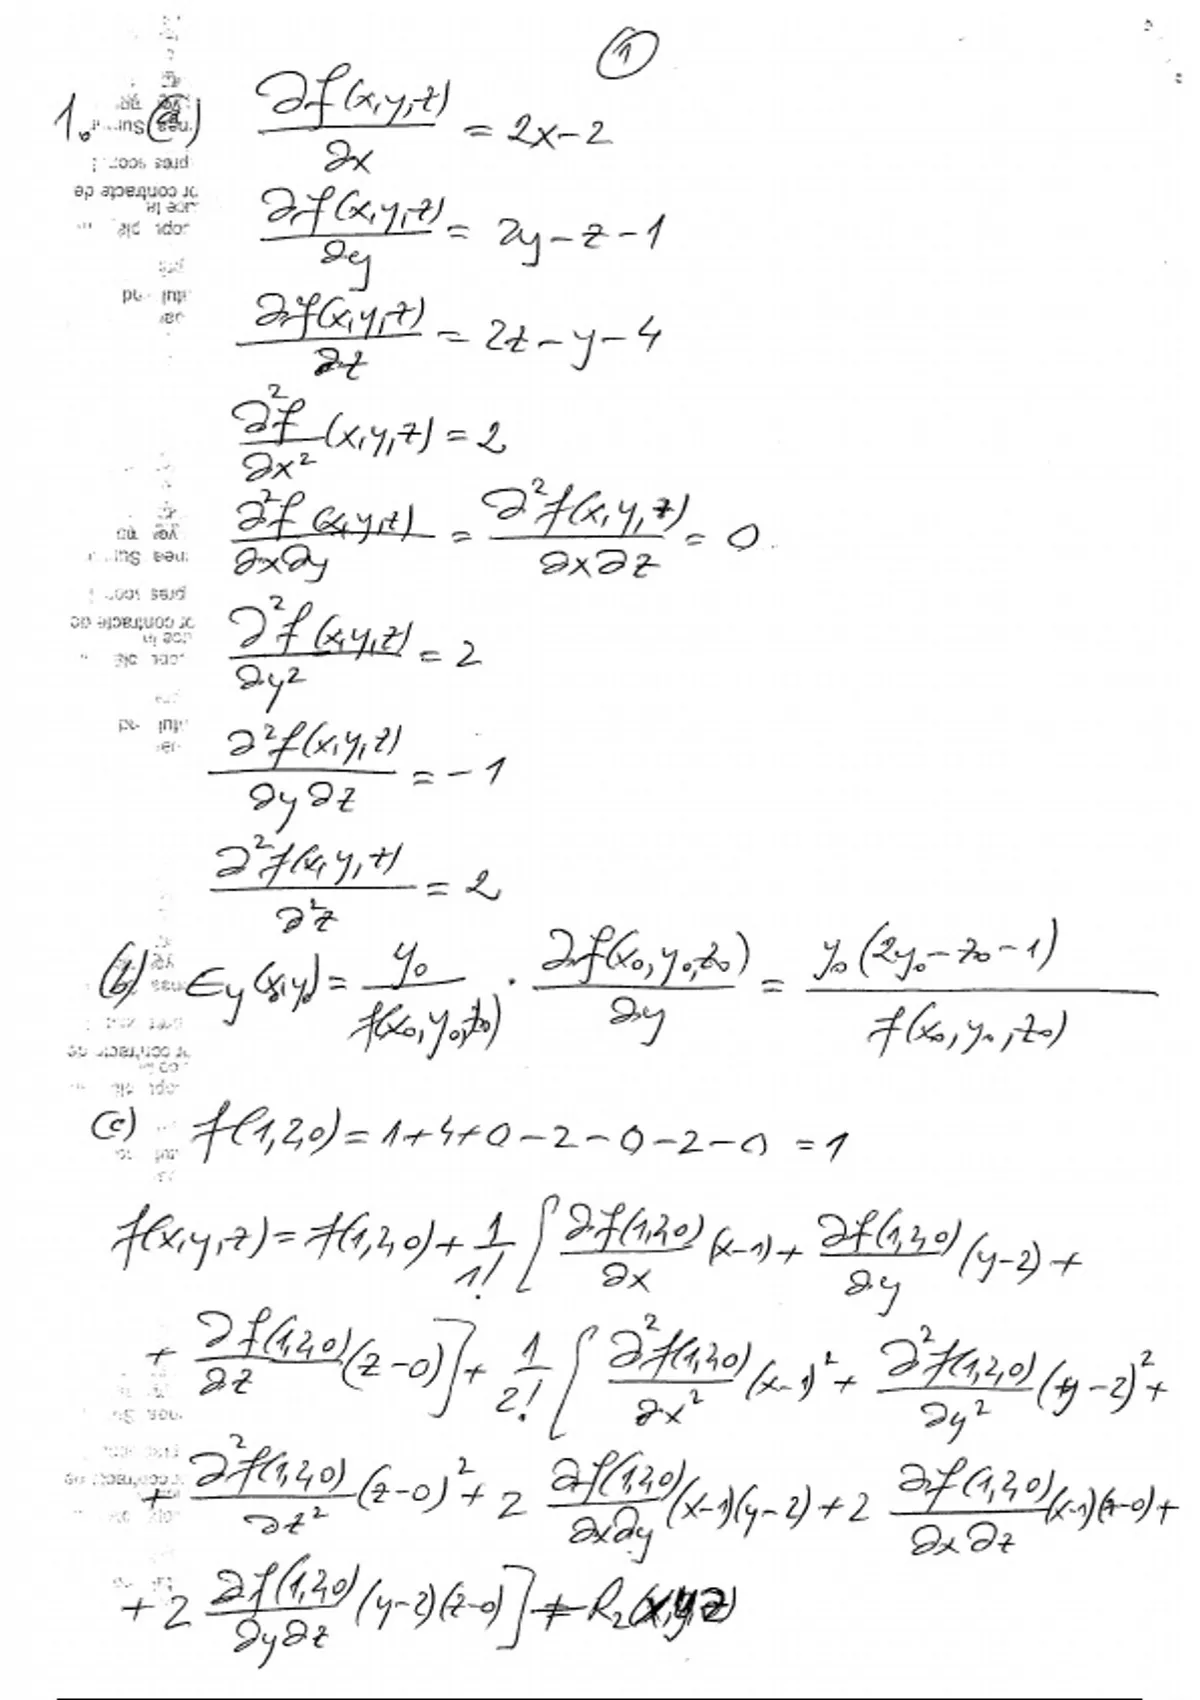 ①
1. (a) ∂f(x,y,z)/∂x = 2x-2
∂f(x,y,z)/∂y = 2y-z-1
∂f(x,y,z)/∂z = 2z-y-4
∂²f/∂x² (x,y,z) = 2
∂²f(x,y,z)/∂x∂y = ∂²f(x,y,z)/∂x∂z = 0
∂²f(x,y,z)/∂y² = 2
∂²f(x,y,z)/∂y∂z = -1
∂²f(x,y,z)/∂²z = 2
(b) Ey(x₀,y₀) = y₀/f(x₀,y₀,z₀) · ∂f(x₀,y₀,z₀)/∂y = y₀(2y₀-z₀-1)/f(x₀,y₀,z₀)
(c) f(1,2,0) = 1+4+0-2-0-2-0 = 1
f(x,y,z) = f(1,2,0) + 1/1! [∂f(1,2,0)/∂x (x-1) + ∂f(1,2,0)/∂y (y-2) +
+ ∂f(1,2,0)/∂z (z-0)] + 1/2! [∂²f(1,2,0)/∂x² (x-1)² + ∂²f(1,2,0)/∂y² (y-2)² +
+ ∂²f(1,2,0)/∂z² (z-0)² + 2 ∂f(1,2,0)/∂x∂y (x-1)(y-2) + 2 ∂f(1,2,0)/∂x∂z (x-1)(z-0) +
+ 2 ∂f(1,2,0)/∂y∂z (y-2)(z-0)] + R₂(x,y,z)